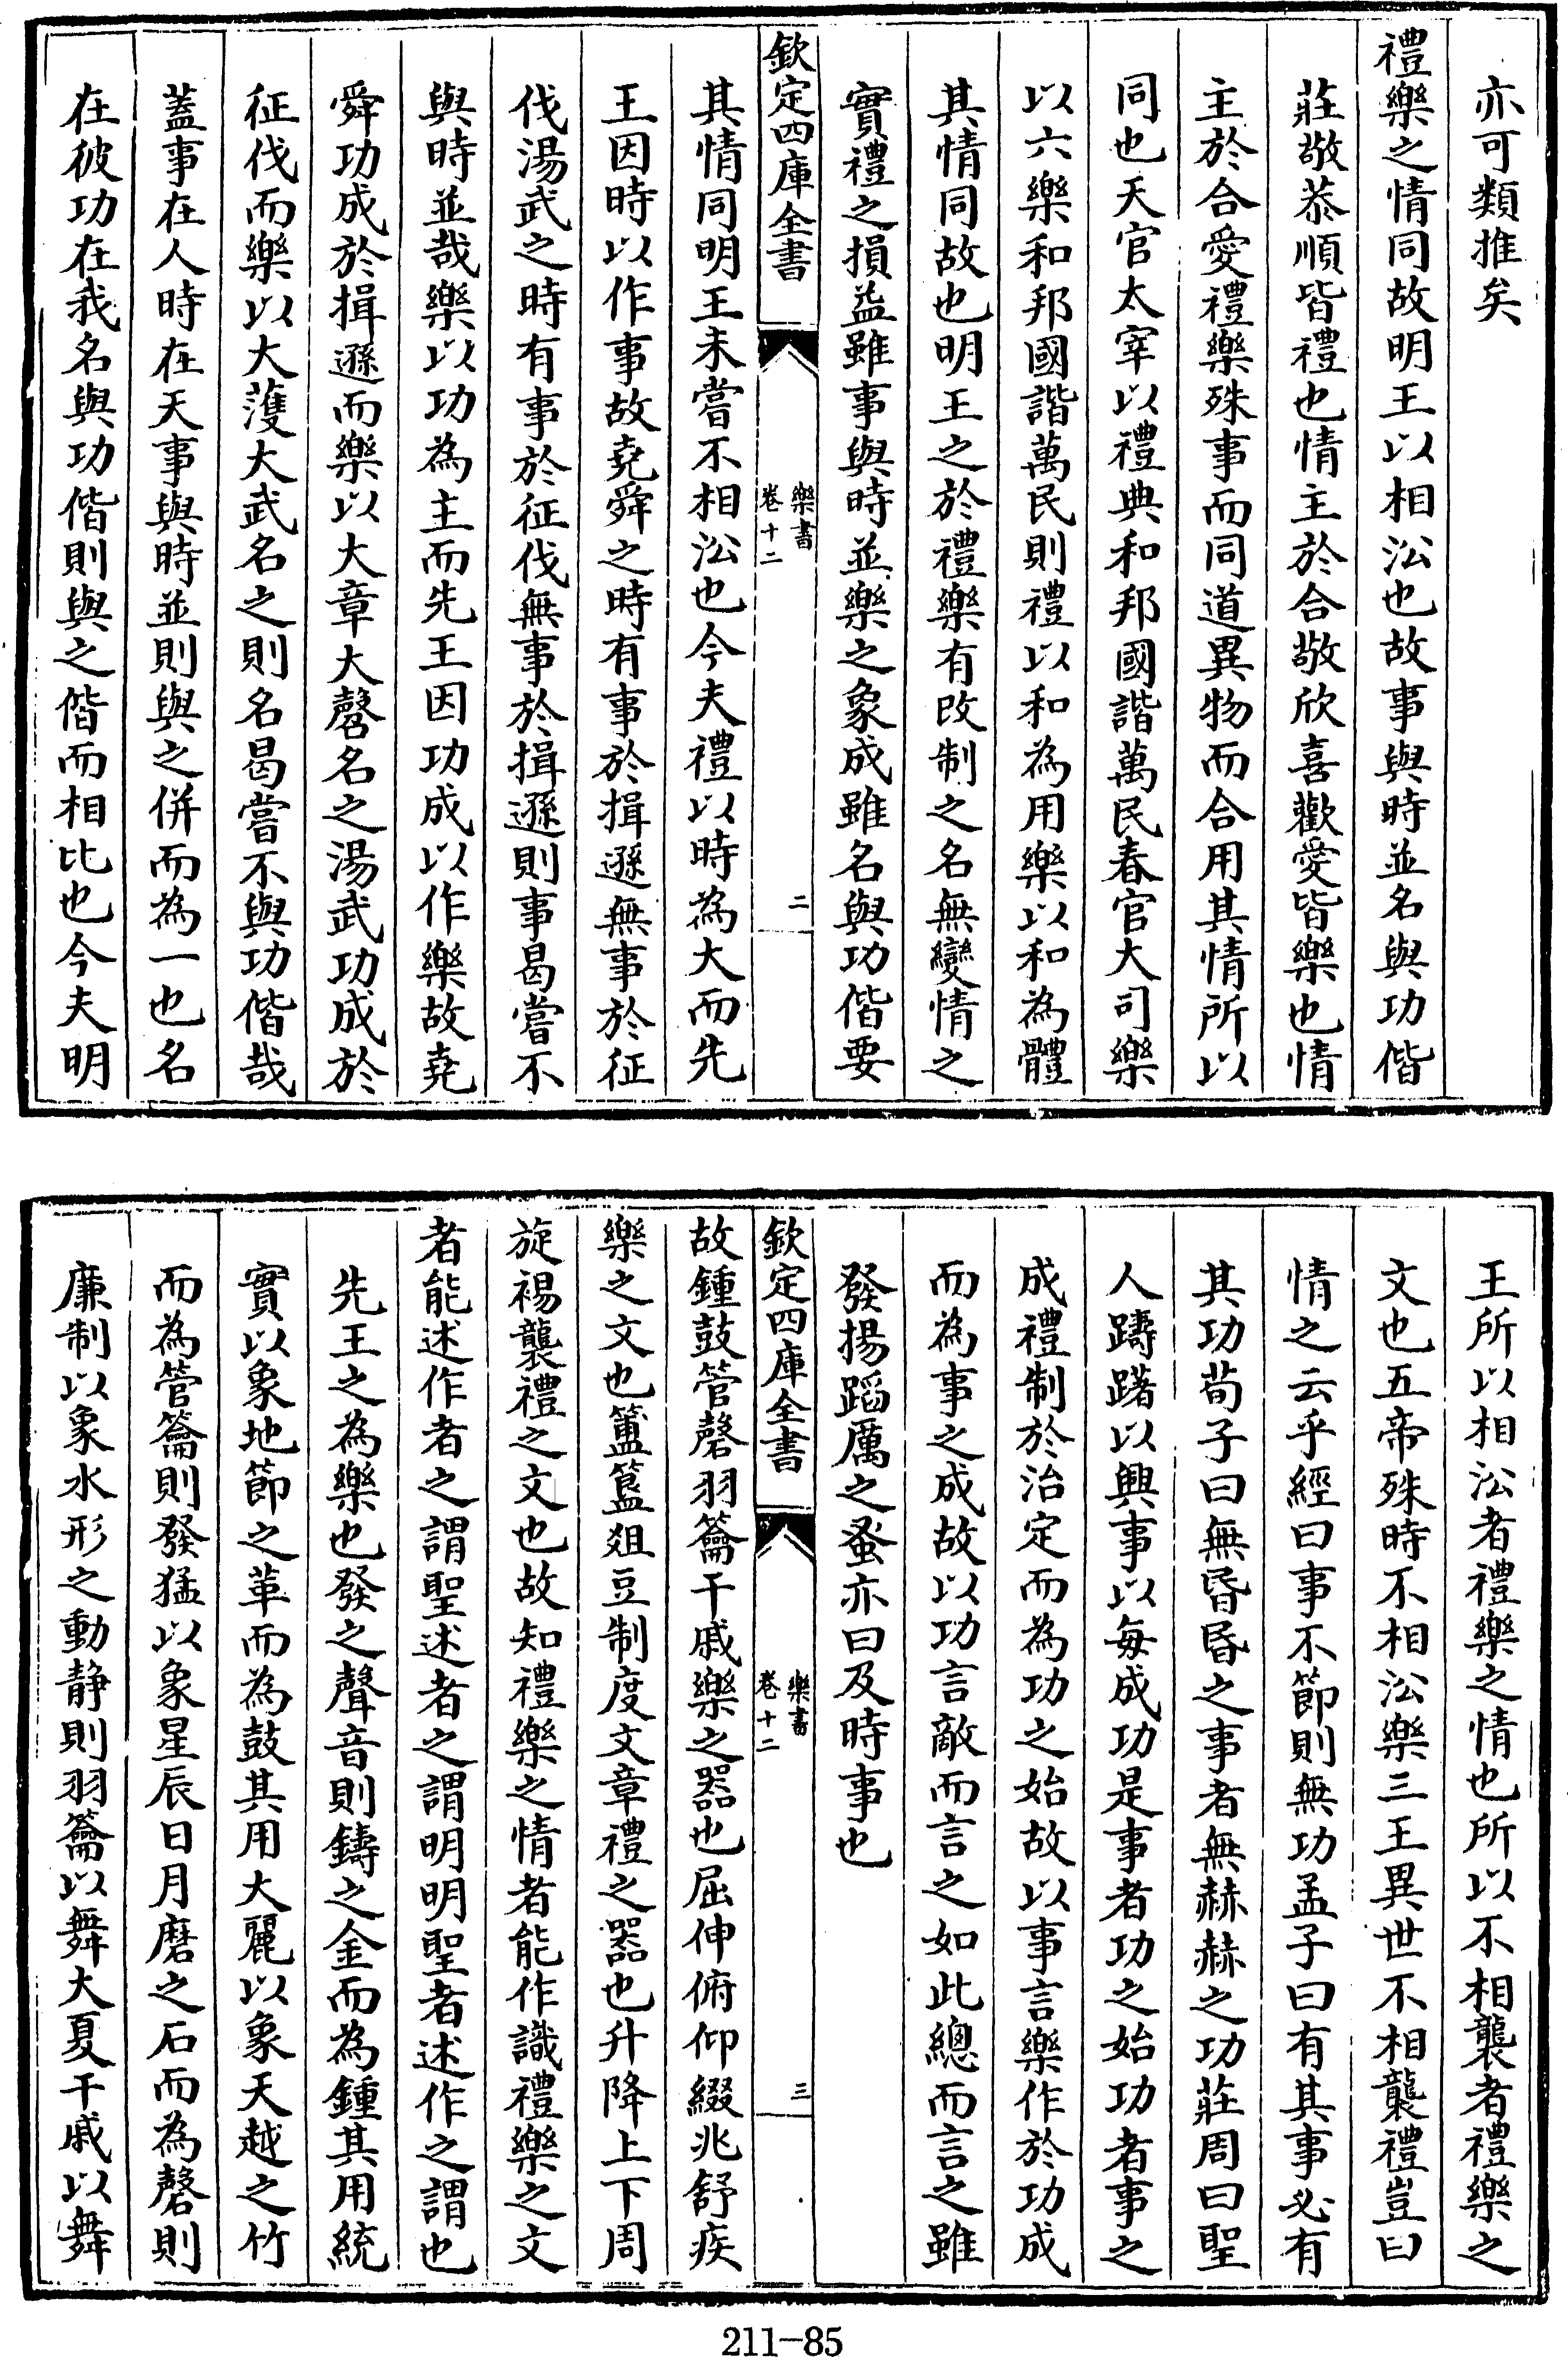 亦可類推矣
禮樂之情同故明王以相㳂也故事與時並名與功偕
莊敬恭順皆禮也情主於合敬欣喜歡愛皆樂也情
主於合愛禮樂殊事而同道異物而合用其情所以
同也天官太宰以禮典和邦國諧萬民春官大司樂
以六樂和邦國諧萬民則禮以和為用樂以和為體
其情同故也明王之於禮樂有改制之名無變情之
實禮之損益雖事與時並樂之象成雖名與功偕要
欽定四庫全書
樂書
卷十二
二
其情同明王未嘗不相㳂也今夫禮以時為大而先
王因時以作事故堯舜之時有事於揖遜無事於征
伐湯武之時有事於征伐無事於揖遜則事曷嘗不
與時並哉樂以功為主而先王因功成以作樂故堯
舜功成於揖遜而樂以大章大磬名之湯武功成於
征伐而樂以大濩大武名之則名曷嘗不與功偕哉
蓋事在人時在天事與時並則與之併而為一也名
在彼功在我名與功偕則與之偕而相比也今夫明
王所以相㳂者禮樂之情也所以不相襲者禮樂之
文也五帝殊時不相㳂樂三王異世不相襲禮豈曰
情之云乎經曰事不節則無功孟子曰有其事必有
其功荀子曰無昏昏之事者無赫赫之功莊周曰聖
人躊躇以興事以每成功是事者功之始功者事之
成禮制於治定而為功之始故以事言樂作於功成
而為事之成故以功言敵而言之如此總而言之雖
發揚蹈厲之蚤亦曰及時事也
欽定四庫全書
樂書
卷十二
三
故鍾鼓管磬羽籥干戚樂之器也屈伸俯仰綴兆舒疾
樂之文也簠簋俎豆制度文章禮之器也升降上下周
旋裼襲禮之文也故知禮樂之情者能作識禮樂之文
者能述作者之謂聖述者之謂明明聖者述作之謂也
先王之為樂也發之聲音則鑄之金而為鍾其用統
實以象地節之革而為鼓其用大麗以象天越之竹
而為管籥則發猛以象星辰日月磨之石而為磬則
廉制以象水形之動静則羽籥以舞大夏干戚以舞
211-85